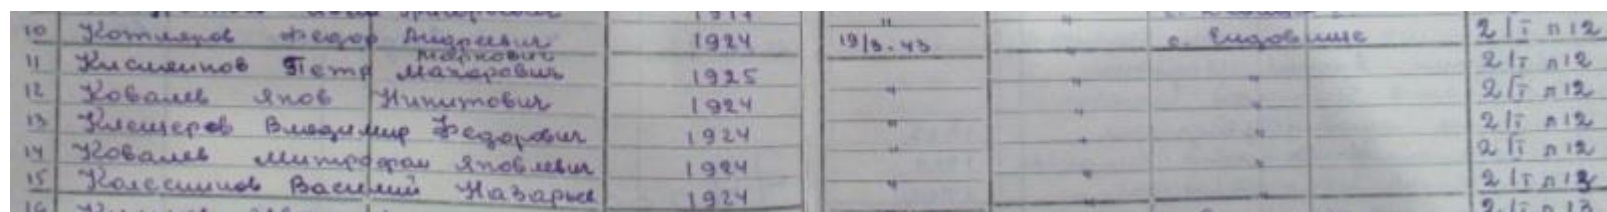 10 Котляров Федор Андреевич 1924 19/3.43 " с. Ендовище 2/I п12
Маркович
11 Кисляков Петр Макарович 1925 " " " 2/I п12
12 Ковалев Яков Никитович 1924 " " " 2/I п12
13 Клещеров Владимир Федорович 1924 " " " 2/I п12
14 Ковалев Митрофан Яковлевич 1924 " " " 2/I п12
15 Колесников Василий Назарьев 1924 " " " 2/I п13
16 2/I п13